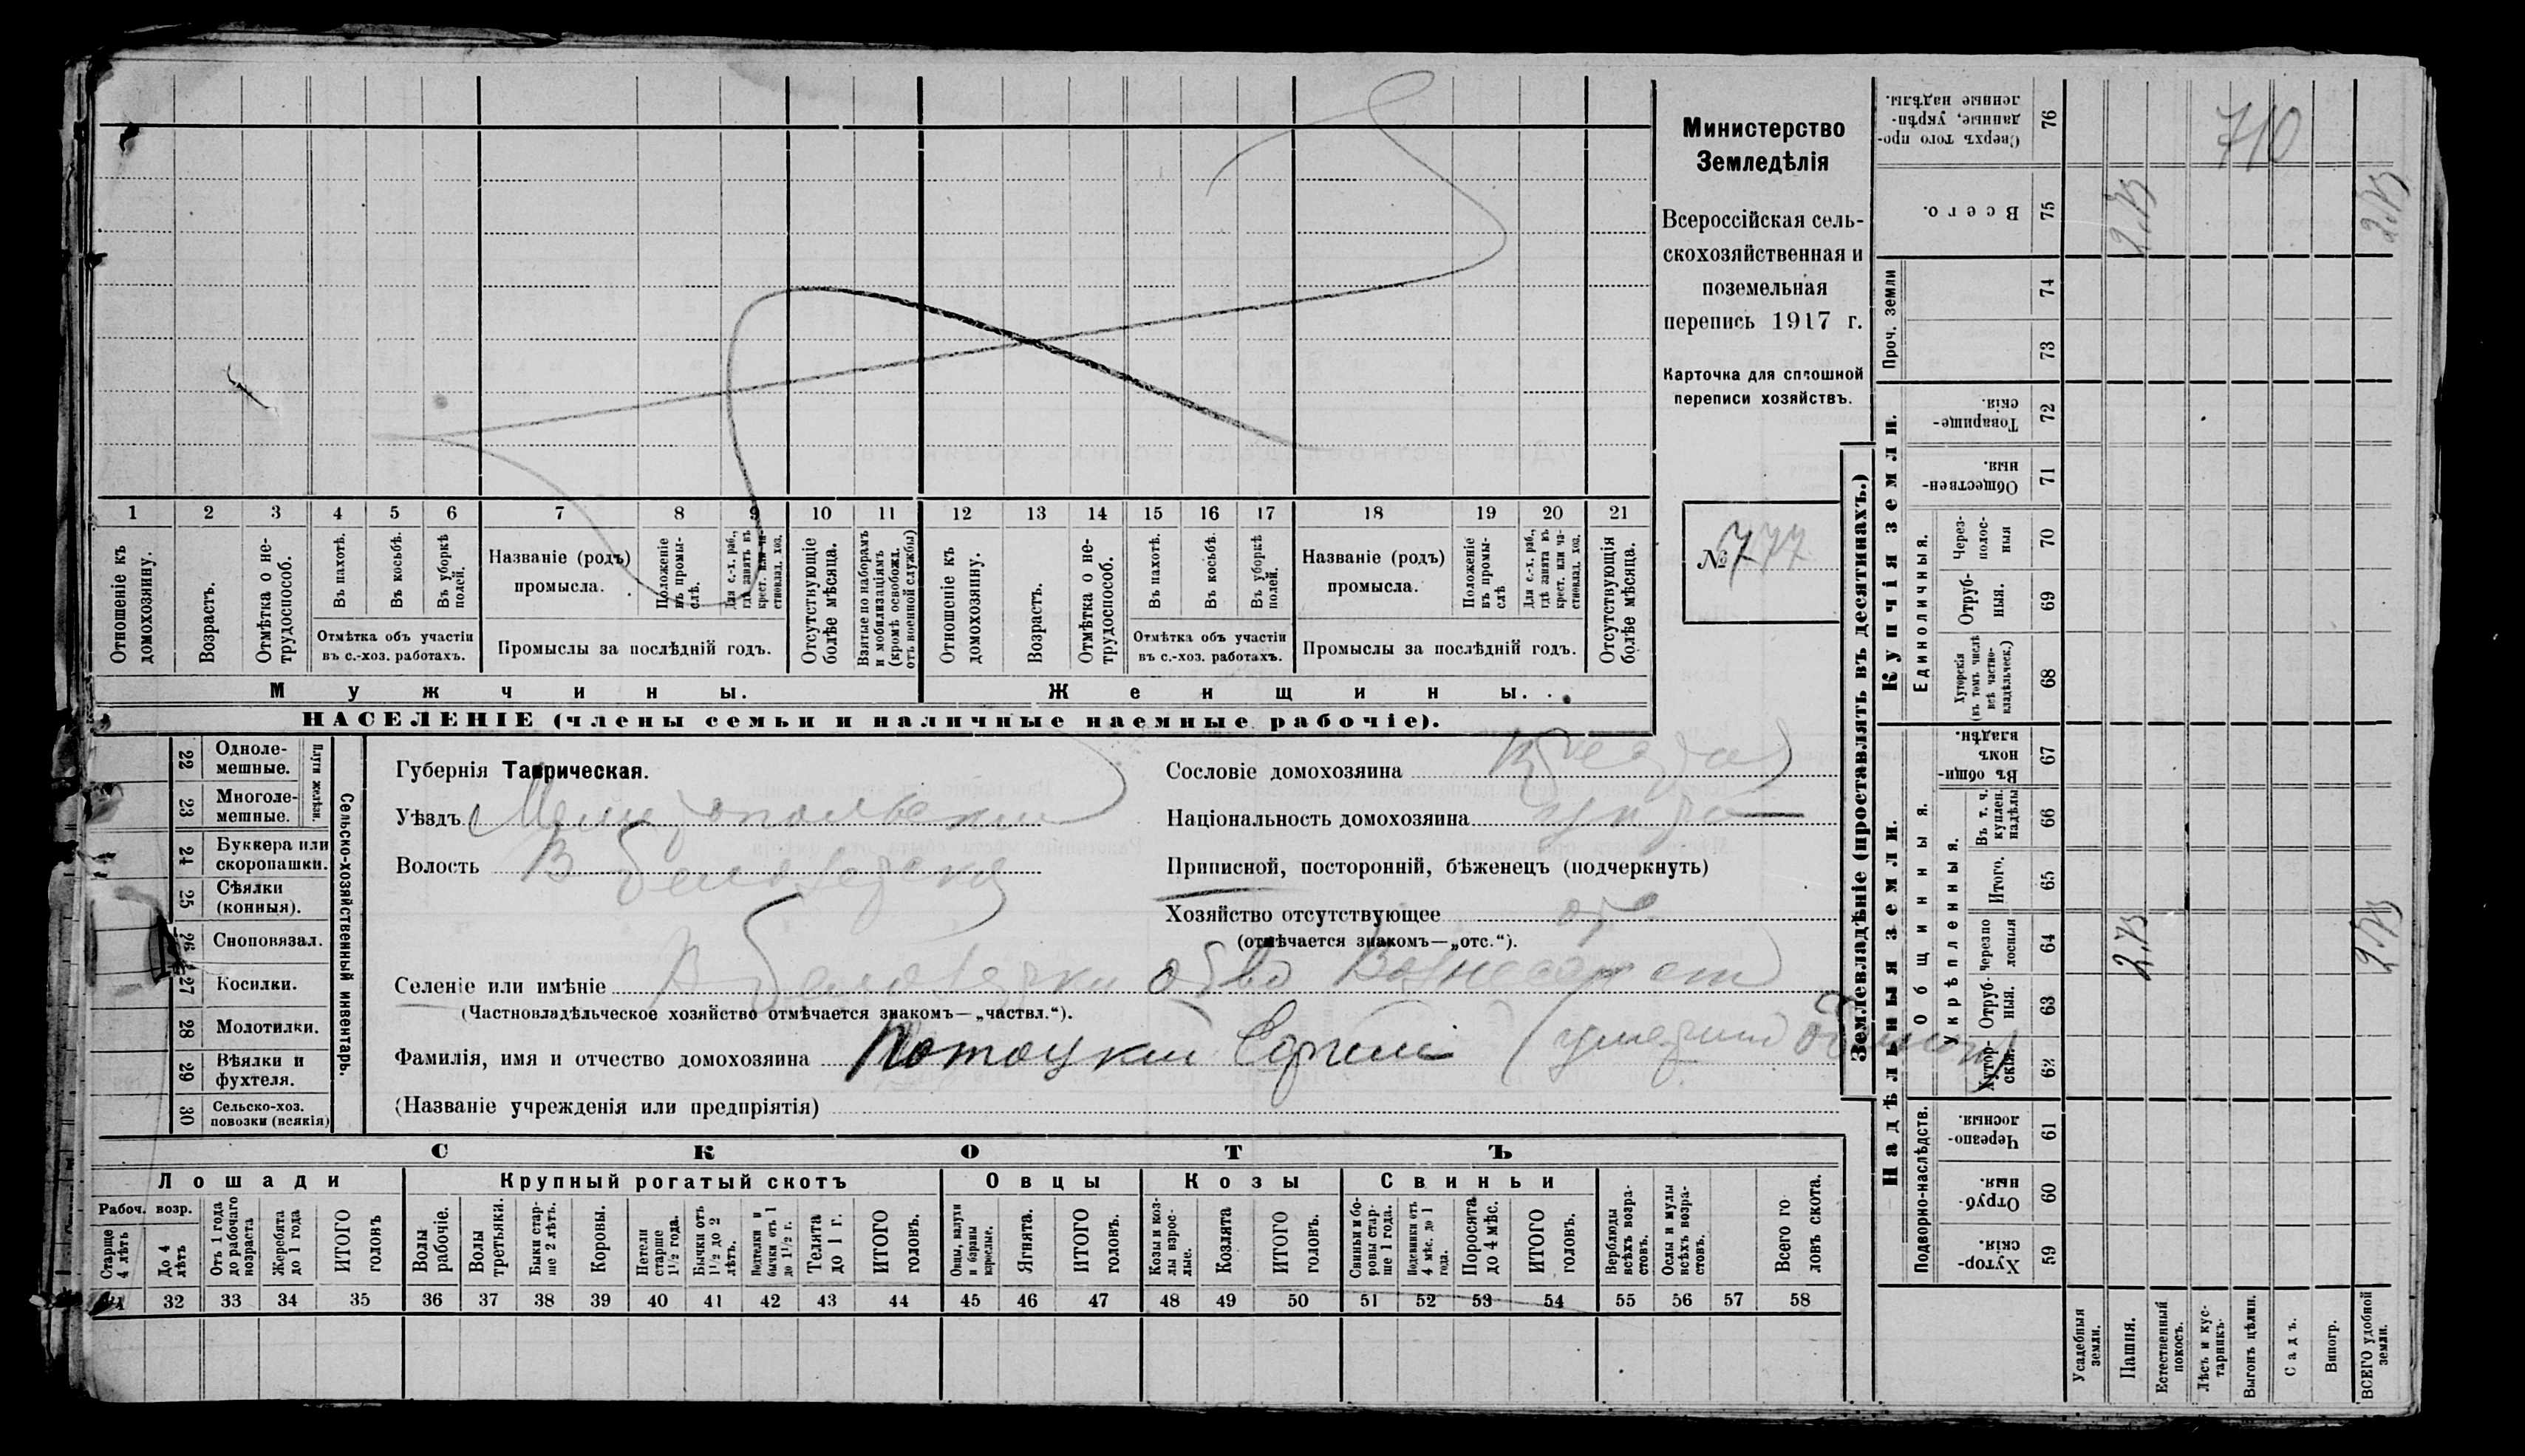 Министерство
Земледѣлія
Всероссійская сель-
скохозяйственная и
поземельная
перепись 1917 г.
Карточка для сплошной
переписи хозяйствъ.
№ 777
1 2 3 4 5 6 7 8 9 10 11 12 13 14 15 16 17 18 19 20 21
Отношеніе къ домохозяину.
Возрастъ.
Отмѣтка о не-трудоспособ.
Въ пахотѣ.
Въ косьбѣ.
Въ уборкѣ полей.
Отмѣтка объ участіи
въ с.-хоз. работахъ.
Названіе (родъ)
промысла.
Положеніе въ промы-слѣ.
Для с.-х. раб., гдѣ занятъ въ крест. или ча-стновлад. хоз.
Промыслы за послѣдній годъ.
Отсутствующіе болѣе мѣсяца.
Взятые по наборамъ и мобилизаціямъ (кромѣ освобожд. отъ военной службы)
Отношеніе къ домохозяину.
Возрастъ.
Отмѣтка о не-трудоспособ.
Въ пахотѣ.
Въ косьбѣ.
Въ уборкѣ полей.
Отмѣтка объ участіи
въ с.-хоз. работахъ.
Названіе (родъ)
промысла.
Положеніе въ промы-слѣ
Для с.-х. раб., гдѣ занята въ крест. или ча-стновлад. хоз.
Промыслы за послѣдній годъ.
Отсутствующія болѣе мѣсяца.
Мужчины.
Женщины.
НАСЕЛЕНІЕ (члены семьи и наличные наемные рабочіе).
Сельско-хозяйственный инвентарь.
Плуги желѣзн.
22 Одноле-мешные.
23 Многоле-мешные.
24 Буккера или скоропашки.
25 Сѣялки (конныя).
26 Сноповязал.
27 Косилки.
28 Молотилки.
29 Вѣялки и фухтеля.
30 Сельско-хоз. повозки (всякія)
Губернія Таврическая.
Уѣздъ Мелитопольскій
Волость В Белозерская
Сословіе домохозяина
Національность домохозяина укра
Приписной, посторонній, бѣженецъ (подчеркнуть)
Хозяйство отсутствующее отс
(отмѣчается знакомъ—„отс.“).
Селеніе или имѣніе В Белозерка об-во
(Частновладѣльческое хозяйство отмѣчается знакомъ—„частвл.“).
Фамилія, имя и отчество домохозяина Потоцкій Сергей
(Названіе учрежденія или предпріятія)
СКОТЪ
Лошади
Крупный рогатый скотъ
Овцы
Козы
Свиньи
Рабоч. возр.
Старше 4 лѣтъ
До 4 лѣтъ
Отъ 1 года до рабочаго возраста
Жеребята до 1 года
ИТОГО головъ
Волы рабочіе.
Волы третьяки.
Быки стар-ше 2 лѣтъ.
Коровы.
Нетели старше 1½ года.
Бычки отъ 1½ до 2 лѣтъ.
Подтелки и бычки отъ 1 до 1½ г.
Телята до 1 г.
ИТОГО головъ.
Овцы, валухи и бараны взрослые.
Ягнята.
ИТОГО головъ.
Козы и коз-лы взрос-лые.
Козлята
ИТОГО головъ.
Свиньи и бо-ровы стар-ше 1 года.
Подсвинки отъ 4 мѣс. до 1 года.
Поросята до 4 мѣс.
ИТОГО головъ.
Верблюды всѣхъ возра-стовъ.
Ослы и мулы всѣхъ возра-стовъ.
Всего го ловъ скота.
31 32 33 34 35 36 37 38 39 40 41 42 43 44 45 46 47 48 49 50 51 52 53 54 55 56 57 58
Землевладѣніе (проставлять въ десятинахъ.)
Надѣльныя земли.
Купчія земли.
Проч. земли
Подворно-наслѣдств.
Общинныя.
Укрѣпленныя.
Единоличныя.
76 Сверхъ того про-данные, укрѣп-ленные надѣлы.
710
75 Всего. 2,75 2,75
74
73
72 Товарище-скія.
71 Обществен-ныя.
70 Через-полос-ныя
69 Отруб-ныя.
68 Хуторскія (въ томъ числѣ всѣ частно-владѣльческ.)
67 Въ общин-номъ владѣн.
66 Въ т. ч. куплен. надѣлы
65 Итого.
64 Черезпо лосныя 2,75 2,75
63 Отруб-ныя.
62 Хутор-скія.
61 Черезпо-лосныя.
60 Отруб-ныя.
59 Хутор-скія.
Усадебныя земли.
Пашня.
Естественный покосъ.
Лѣсъ и кус-тарникъ.
Выгонъ цѣлин.
Садъ.
Виногр.
ВСЕГО удобной земли.